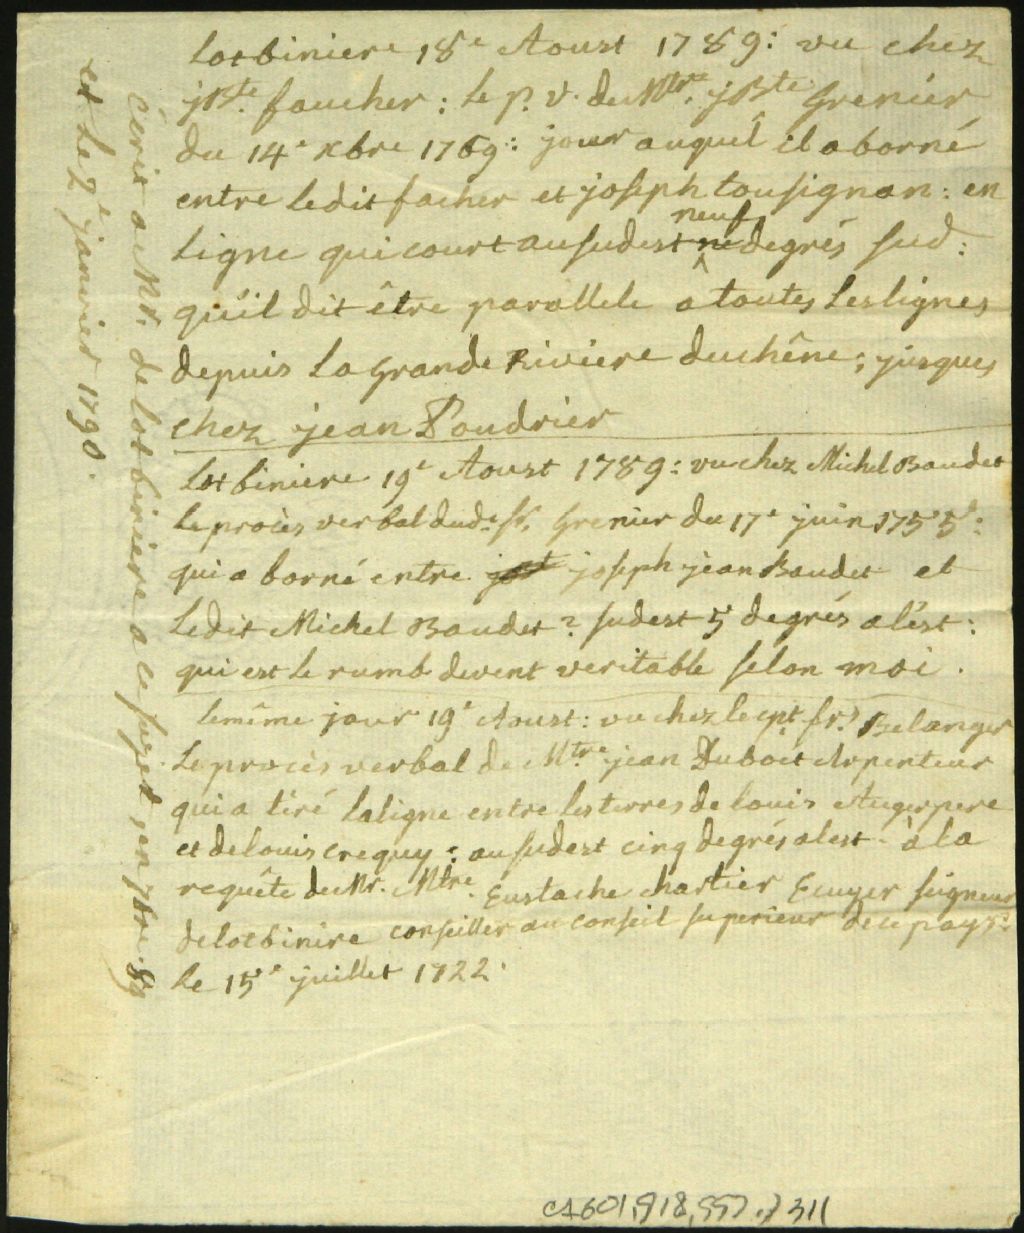 Lotbiniere 18e Aoust 1789: vu chez
jBte. faucher: Le p. v. de Mtre. jBte Grenier
du 14e Xbre 1769: jour auquel il a borné
entre ledit facher et joseph tousignan: en
Ligne qui court au sudest neuf degrés sud:
qu'il dit être parallele a toutes Les lignes
depuis La Grande Riviere duchêne; jusques
chez jean Poudrier
Lotbiniere 19e Aoust 1789: vu chez Michel Baudet
Le procès verbal dud. Sr. Grenier du 17e juin 1755:
qui a borné entre joseph jean Baudet et
Ledit Michel Baudet? sudest 5 degrés a l'ést:
qui est le rumb devent veritable selon moi.
Le même jour 19e Aoust: vu chez le cpt. frs. Belanger
Le procès verbal de Mtre jean Duboct Arpenteur
qui a tiré la ligne entre les terres de louis Auger pere
et de louis crequy: au sudest cinq degrés a lest à la
requête de Mr. Mtre. Eustache chartier Ecuyer seigneur
de lotbinire conseiller au conseil superieur de ce pays:
Le 15e juillet 1722.
écrit a Mr. de lotbiniere a ce sujet, en 7bre. 89
et Le 2e janvier 1790.